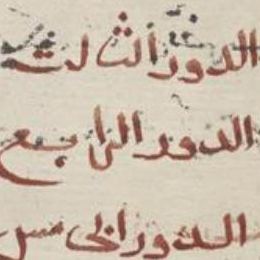 الدور الثالث
الدور الرابع
الدور الخامس